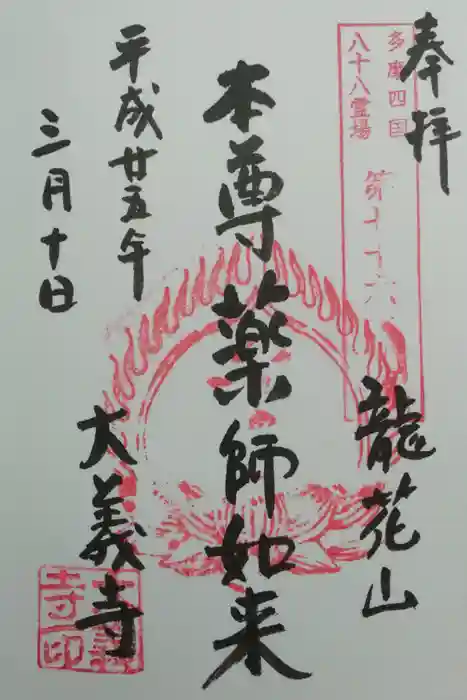 奉拝
多摩四国
八十八霊場
第七十六
龍花山
本尊薬師如来
平成廿五年
三月十日
大義寺
大義
寺印